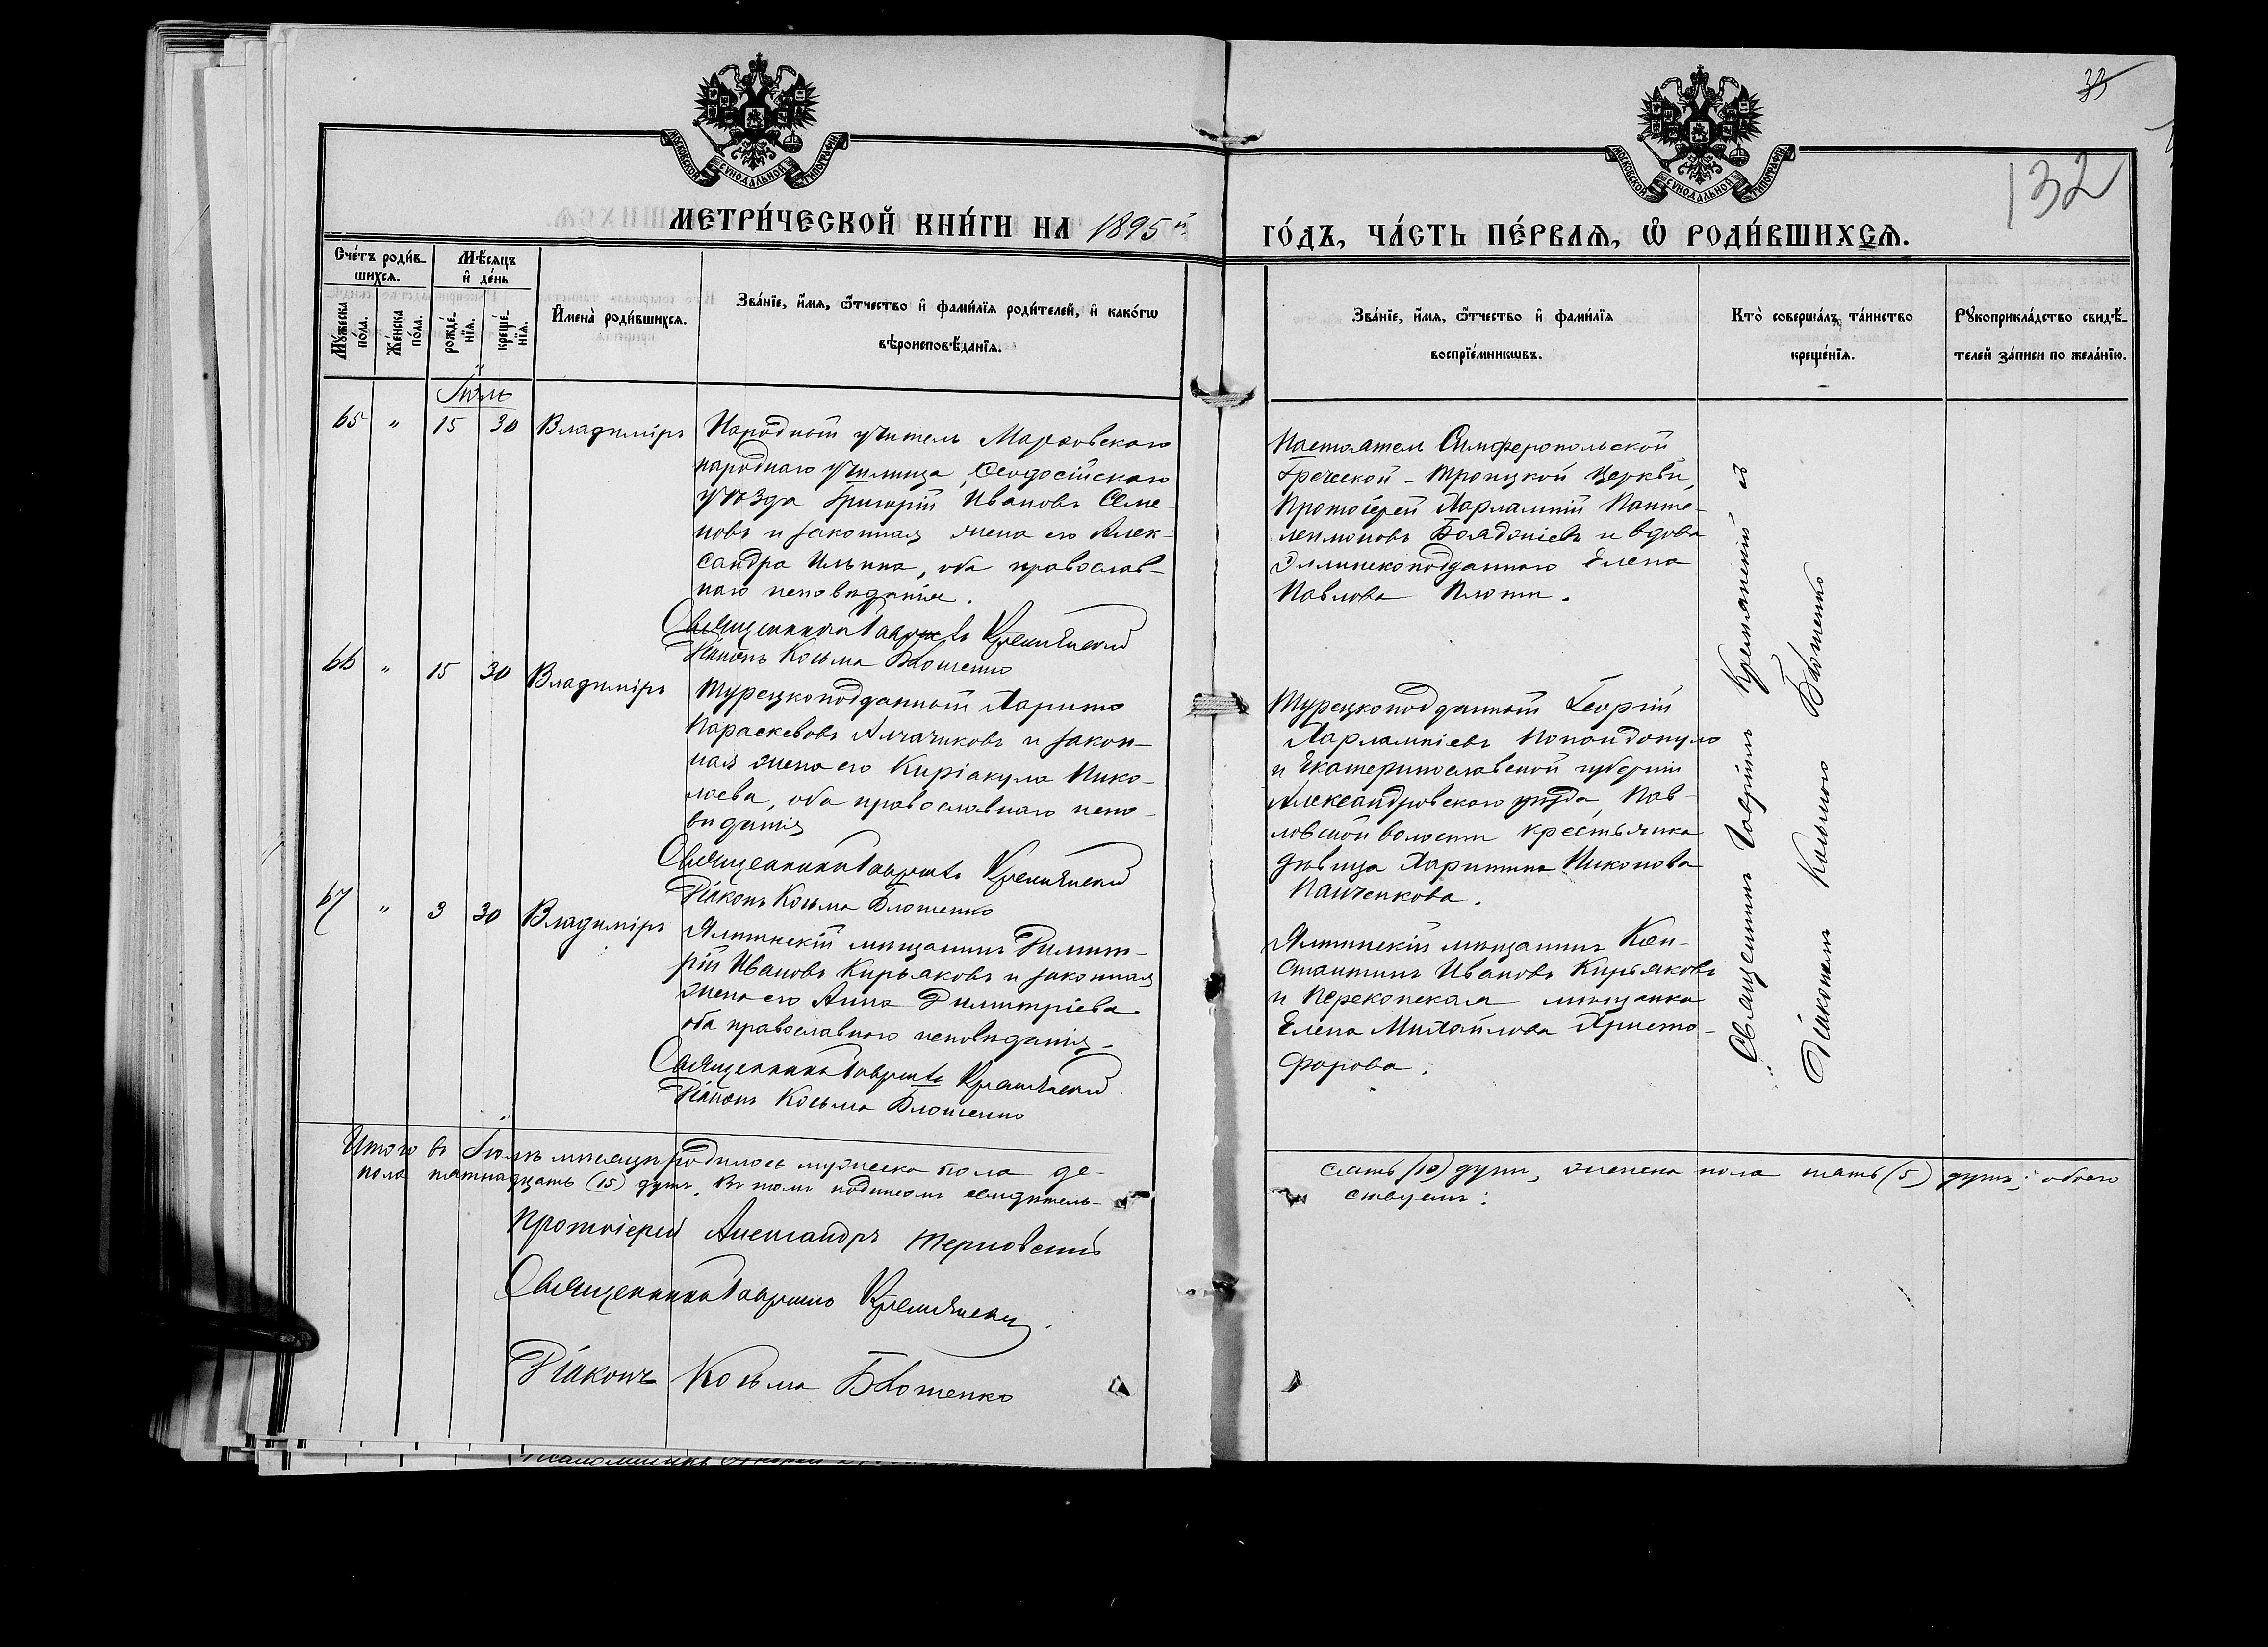 33
132
МОСКОВСКОЙ СѴНОДАЛЬНОЙ ТИПОГРАФІИ
МОСКОВСКОЙ СѴНОДАЛЬНОЙ ТИПОГРАФІИ
МЕТРИ́ЧЕСКОЙ КНИ́ГИ НА 1895 й
ГО́ДЪ, ЧА́СТЬ ПЕ́РВАѦ, Ѽ РОДИ́ВШИХСѦ.
Сче́тъ роди́в-
шихсѧ.
Мꙋ́жеска по́ла.
Же́нска по́ла.
Мѣ́сѧцъ
и҆ де́нь
рожде́-
нїѧ.
креще́-
нїѧ.
И҆мена̀ роди́вшихсѧ.
Зва́нїе, и҆́мѧ, ѻ҆́тчество и҆ фами́лїѧ роди́телей, и҆ како́гѡ
вѣроисповѣ́данїѧ.
Зва́нїе, и҆́мѧ, ѻ҆́тчество и҆ фами́лїѧ
воспрїе́мникѡвъ.
Кто̀ соверша́лъ та́инство
креще́нїѧ.
Рꙋкоприкла́дство свидѣ́-
телей за́писи по жела́нїю.
Іюль
65 " 15 30 Владиміръ
Народный учитель Марковскаго
народнаго училища, Ѳеодосійскаго
уѣзда Григорій Ивановъ Семе-
новъ и законная жена его Алек-
сандра Ильина, оба православ-
наго исповѣданія.
Священникъ Гавріилъ Кремянскій
Діаконъ Козьма Блошенко
Настоятель Симферопольской
Греческой - Троицкой Церкви,
Протоіерей Харлампій Панте-
леимоновъ Бояджіевъ и вдова
Эллинскоподданнаго Елена
Павлова
66 " 15 30 Владиміръ
Турецкоподданный Харито
Параскевовъ Алчачиковъ и закон-
ная жена его Киріакула Нико-
лаева, оба православнаго испо-
вѣданія
Священникъ Гавріилъ Кремянскій
Діаконъ Козьма Блошенко
Турецкоподданный Георгій
Харлампіевъ Попандопуло
и Екатеринославской губерніи
Александровскаго уѣзда, Пав-
ловской волости крестьянка
дѣвица Харитина Никонова
Панченкова.
67 " 3 30 Владиміръ
Ялтинскій мѣщанинъ Димит-
рій Ивановъ Кирьяковъ и законная
жена его Анна Димитріева
оба православнаго исповѣданія.
Священникъ Гавріилъ Кремянскій
Діаконъ Козьма Блошенко
Ялтинскій мѣщанинъ Кон-
стантинъ Ивановъ Кирьяковъ
и Перекопская мѣщанка
Елена Михайлова Христо-
форова.
Священникъ Гавріилъ Кремянскій съ
Діакономъ Козьмою Блошенко
Итого въ Іюлѣ мѣсяцѣ родилось мужеска пола де-
сять (10) душъ, женска пола пять (5) душъ; обоего
пола пятнадцать (15) душъ. Въ томъ подписомъ свидѣтель-
ствуемъ:
Протоіерей Александръ Терновскій
Священникъ Гавріилъ Кремянскій.
Діаконъ Козьма Блошенко